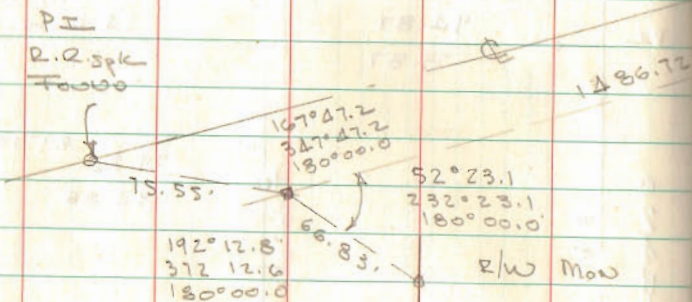 PI
R.R. spk
Found
℄
1486.72
167°47.2
347°47.2
180°00.0
75.55.
52°23.1
232°23.1
180°00.0
66.83.
192°12.8'
372 12.6
180°00.0
R/W Mon